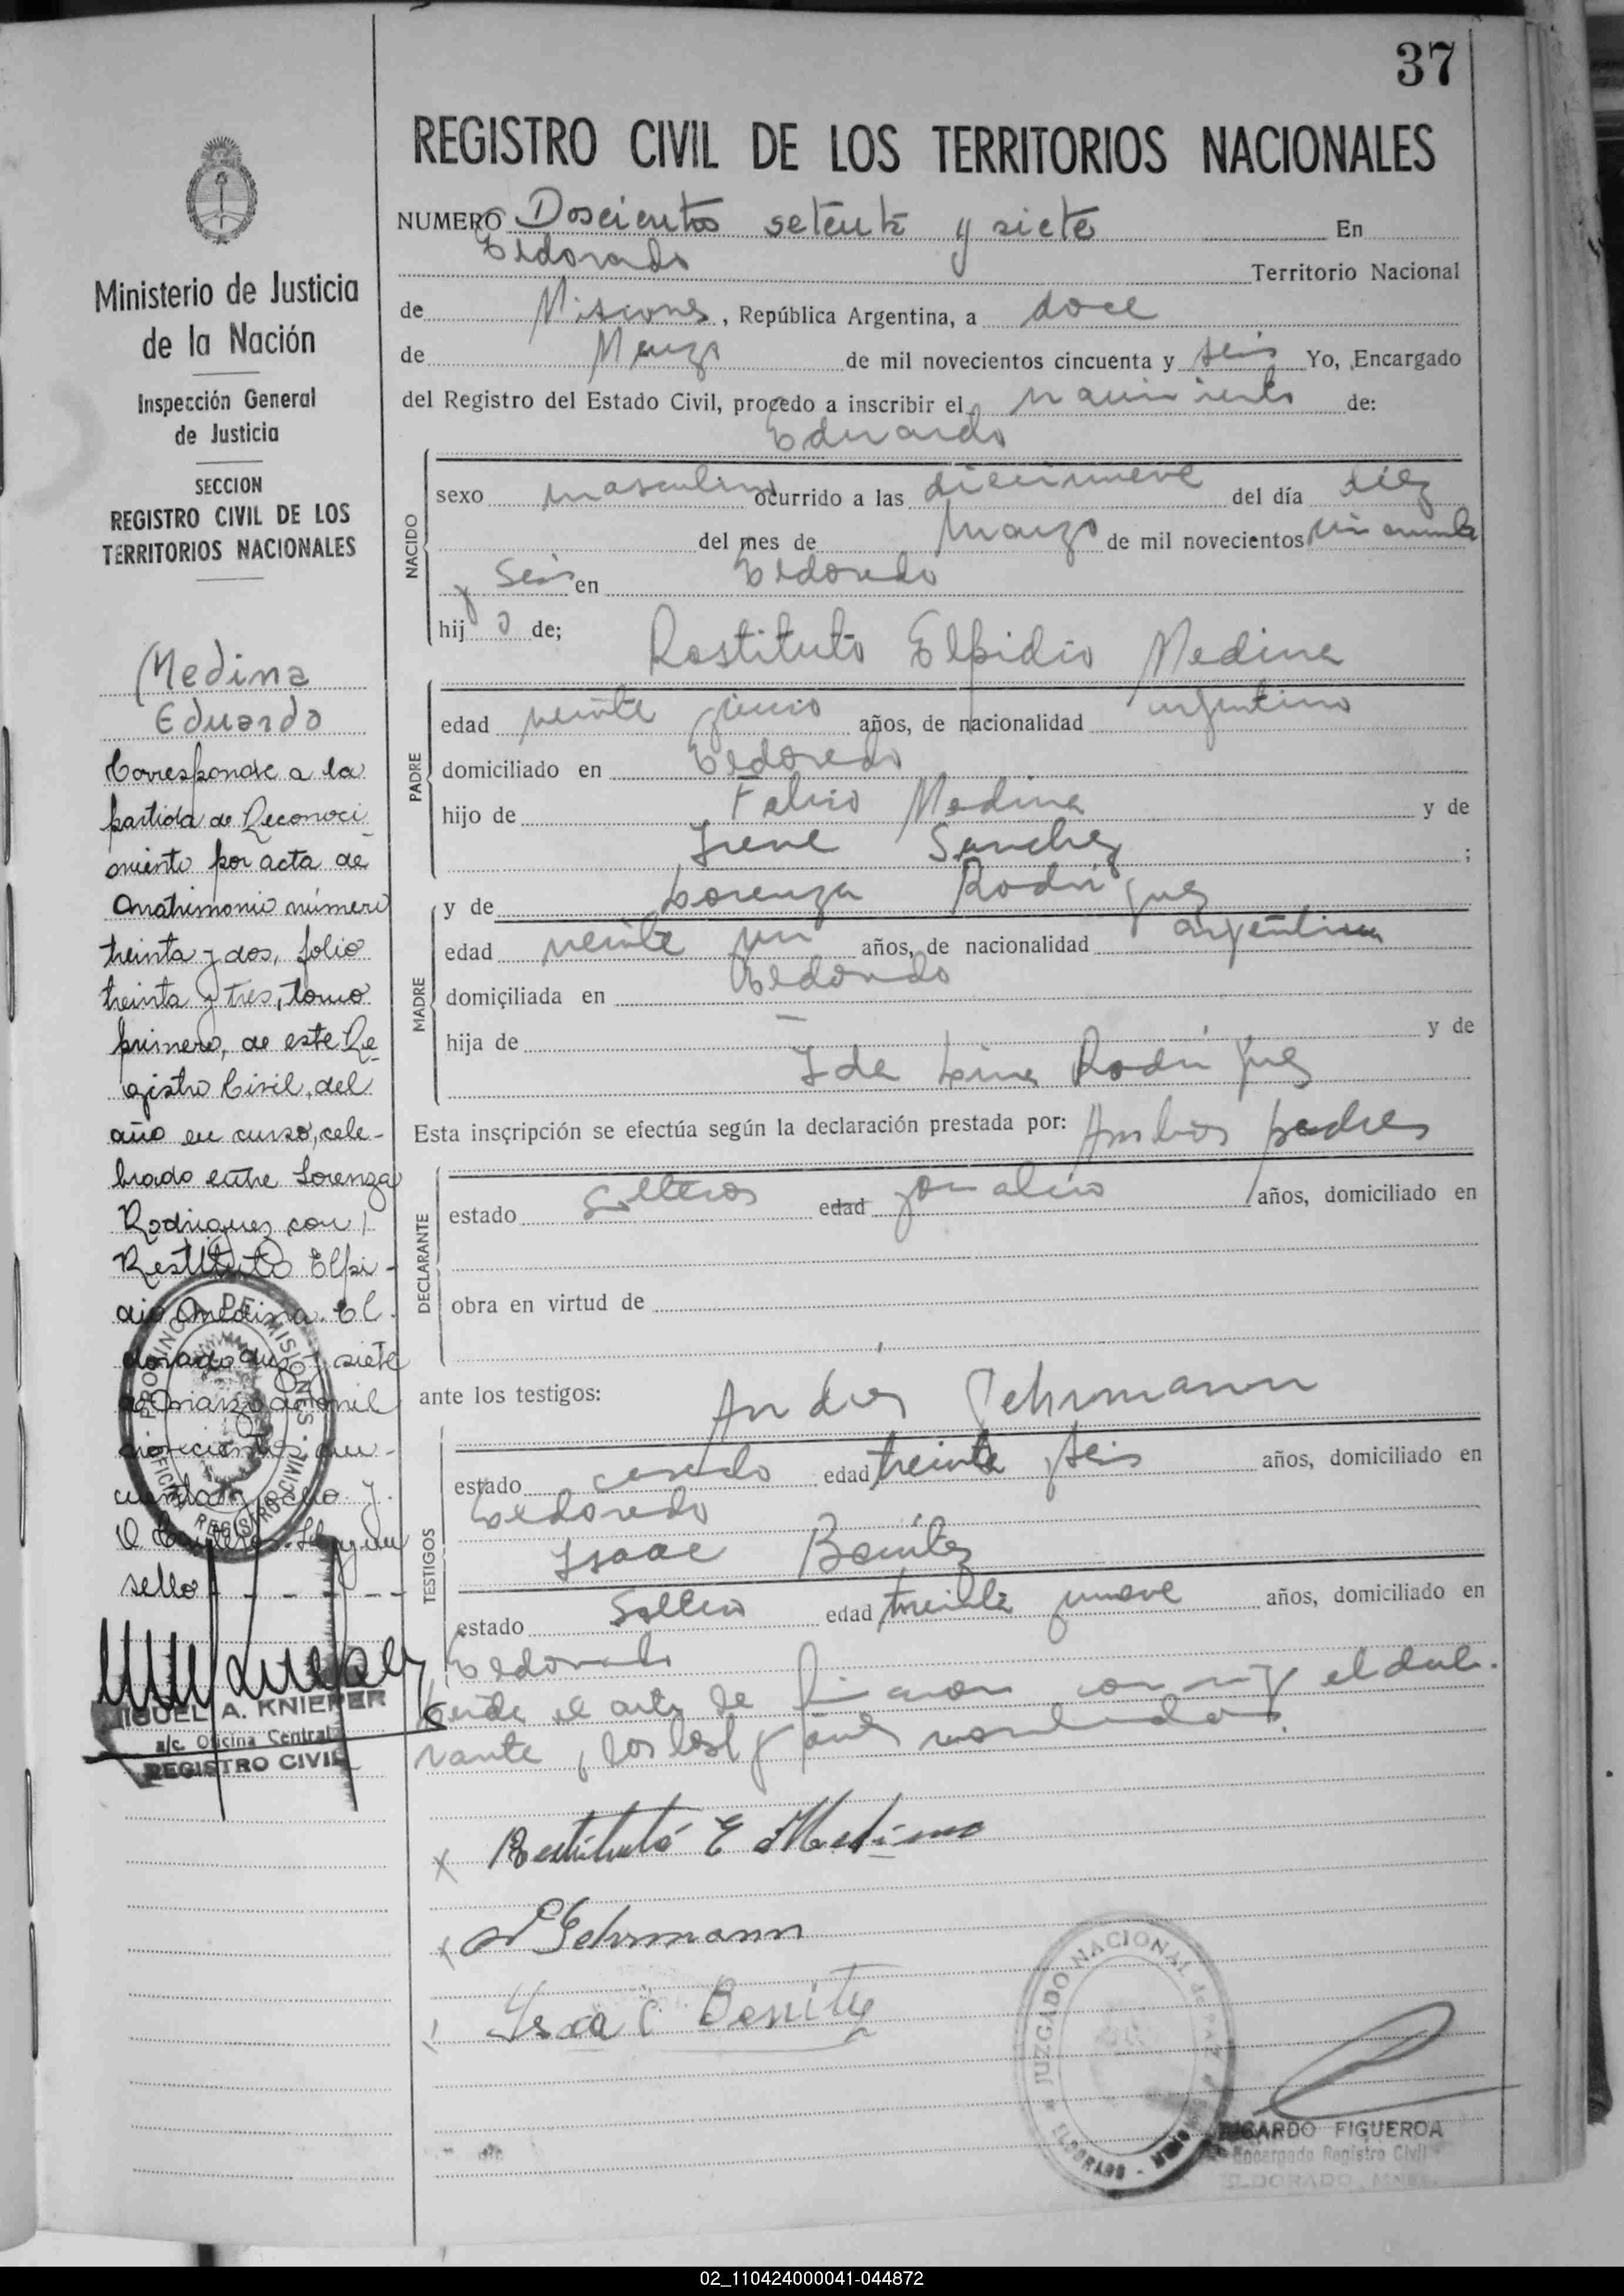 37
REGISTRO CIVIL DE LOS TERRITORIOS NACIONALES
NUMERO Doscientos setenta y siete En
Eldorado Territorio Nacional
de Misiones, República Argentina, a doce
de Marzo de mil novecientos cincuenta y seis Yo, Encargado
del Registro del Estado Civil, procedo a inscribir el nacimiento de:
Eduardo
NACIDO
sexo masculino ocurrido a las diecinueve del día diez
del mes de Marzo de mil novecientos cincuenta
y seis en Eldorado
hij o de;
Restituto Elpidio Medina
PADRE
edad veinte años, de nacionalidad argentino
domiciliado en Eldorado
hijo de Medina y de
Irene Sanchez ;
y de Lorenza Rodriguez
MADRE
edad veinte y un años, de nacionalidad argentina
domiciliada en Eldorado
hija de — y de
Ida Rodriguez
Esta inscripción se efectúa según la declaración prestada por: Ambos padres
DECLARANTE
estado solteros edad años, domiciliado en
obra en virtud de
ante los testigos: Andres Gehrmann
TESTIGOS
estado casado edad treinta y seis años, domiciliado en
Eldorado
Isaac Benitez
estado Soltero edad treinta y nueve años, domiciliado en
Eldorado
Leida el acta la firman con migo el decla-
rante y los testigos nombrados.
Restituto E Medina
Gehrmann
Isaac Benitez
JUZGADO NACIONAL de PAZ
ELDORADO
RICARDO FIGUEROA
Encargado Registro Civil
ELDORADO, MNES.
Ministerio de Justicia
de la Nación
Inspección General
de Justicia
SECCION
REGISTRO CIVIL DE LOS
TERRITORIOS NACIONALES
Medina
Eduardo
Corresponde a la
partida de Reconoci-
miento por acta de
Matrimonio número
treinta y dos, folio
treinta y tres, tomo
primero, de este Re-
gistro Civil, del
año en curso, cele-
brado entre Lorenza
Rodriguez con
Restituto Elpi-
dio Medina. El-
dorado, diez y siete
de Marzo de mil
novecientos cin-
cuenta y ocho
Hay un
sello
PROVINCIA DE MISIONES
OFICINA REGISTRO CIVIL
MIGUEL A. KNIEPER
a/c. Oficina Central
REGISTRO CIVIL
02_110424000041-044872